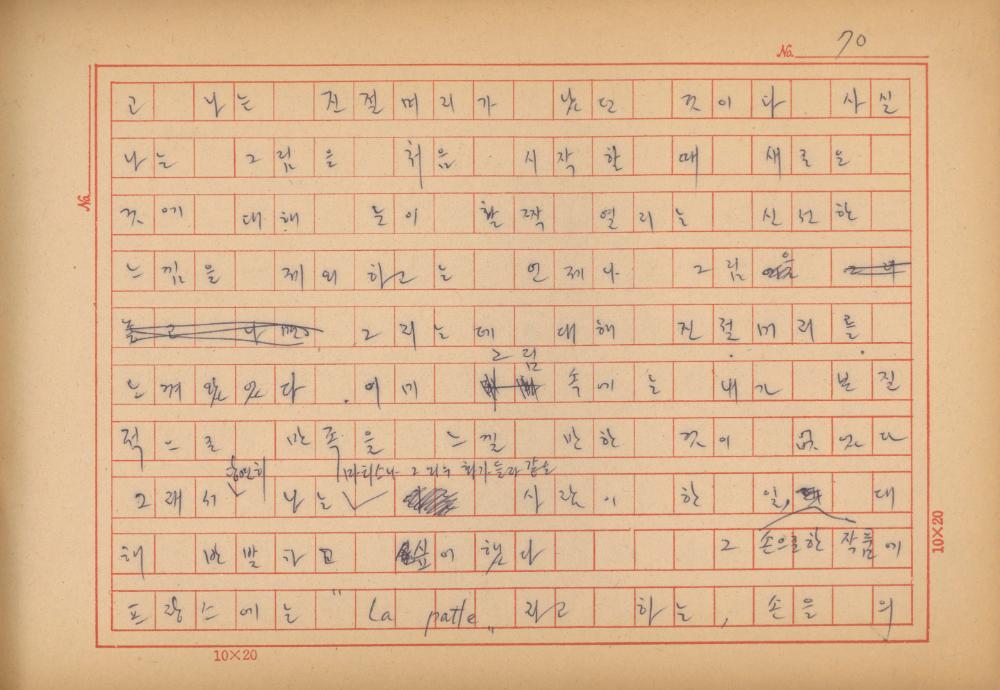 No. 70
고 나는 진절머리가 났던 것이다 사실
나는 그림을 처음 시작할 때 새로운
No.
것에 대해 눈이 활짝 열리는 신선한
느낌을 제외하고는 언제나 그림을
그리는데 대해 진절머리를
그림
느껴왔었다. 이미 속에는 내가 본질
적으로 만족을 느낄 만한 것이 없었다
공연히 마티스나 그 외의 화가들과 같은
그래서 나는 사람이 한 일, 대
해 반발하고 싶어 했다 그 손으로 한 작품에
프랑스에는 "La patte" 라고 하는, 손을 의
10×20
10×20